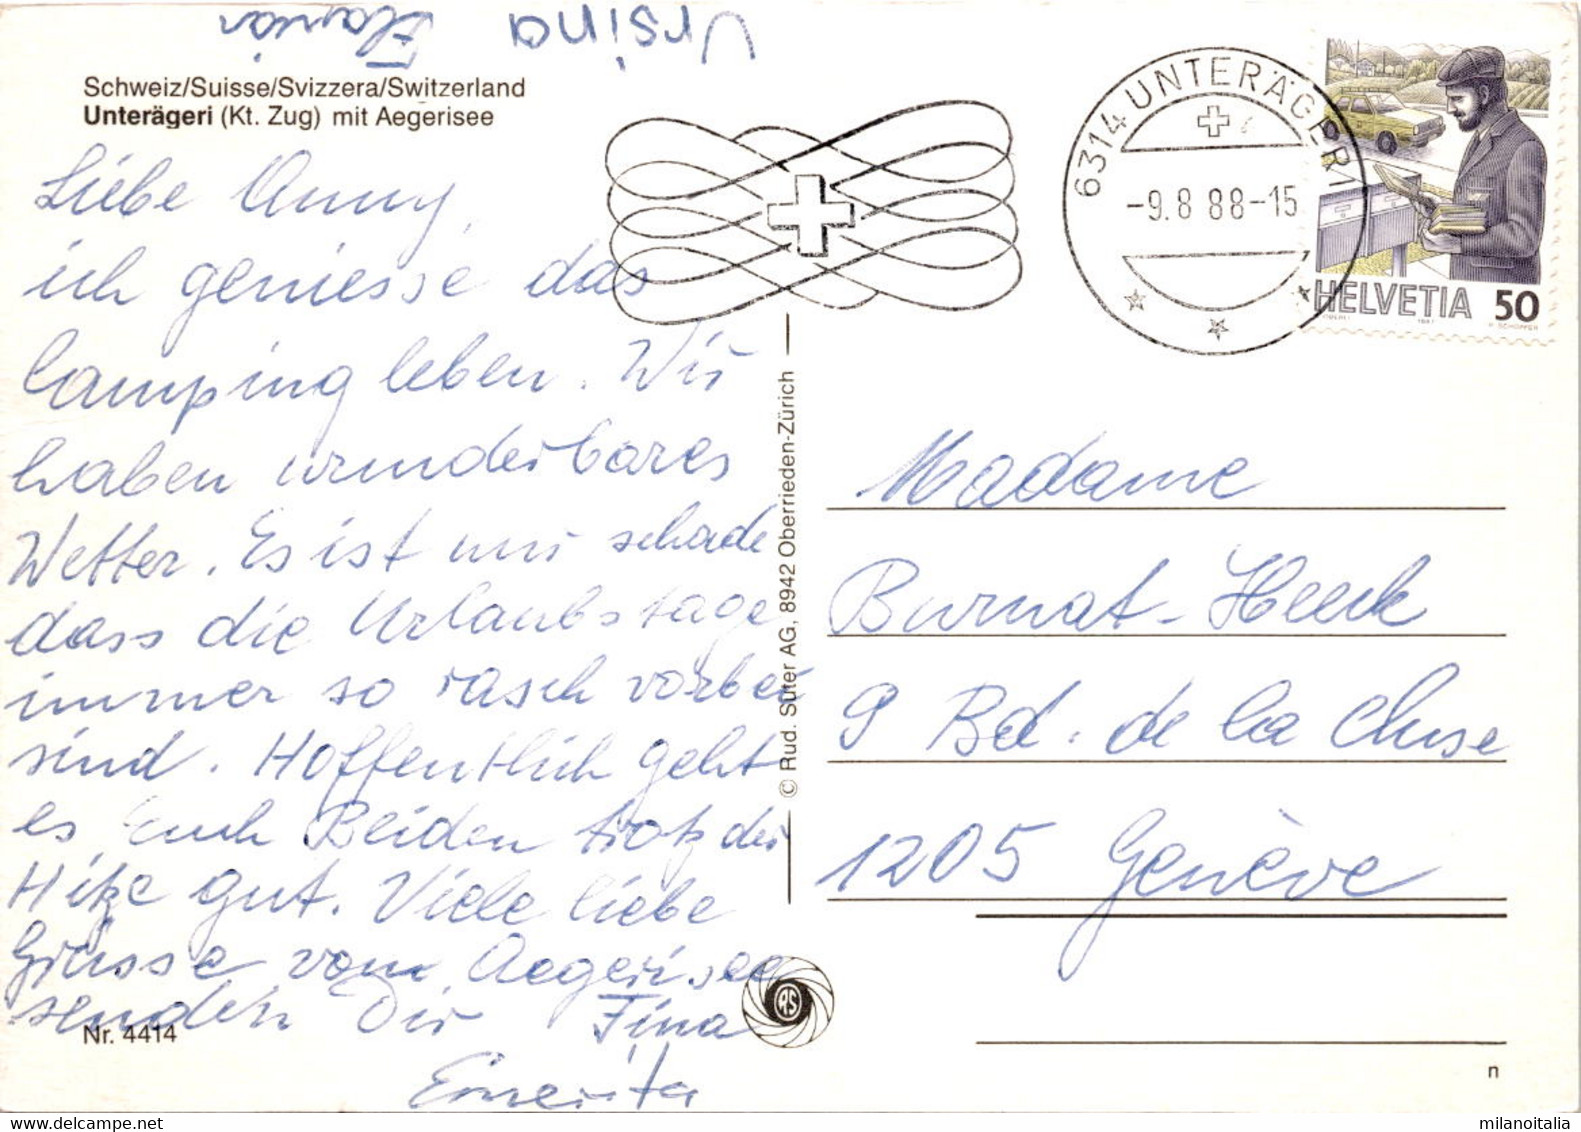 Ursina Flavian
Schweiz/Suisse/Svizzera/Switzerland
Unterägeri (Kt. Zug) mit Aegerisee
Liebe Anny,
ich geniesse das
Campingleben. Wir
haben wunderbares
Wetter. Es ist nur schade
dass die Urlaubstage
immer so rasch vorbei
sind. Hoffentlich geht
es Euch Beiden trotz der
Hitze gut. Viele liebe
Grüsse vom Aegerisee
senden Dir Fina
Emerita
Nr. 4414
© Rud. Suter AG, 8942 Oberrieden-Zürich
RS
6314 UNTERÄGERI
-9.8 88-15
HELVETIA 50
1987
P. SCHOPFER
Madame
Burnat-Heeck
9 Bd. de la Cluse
1205 Genève
n
milanoitalia